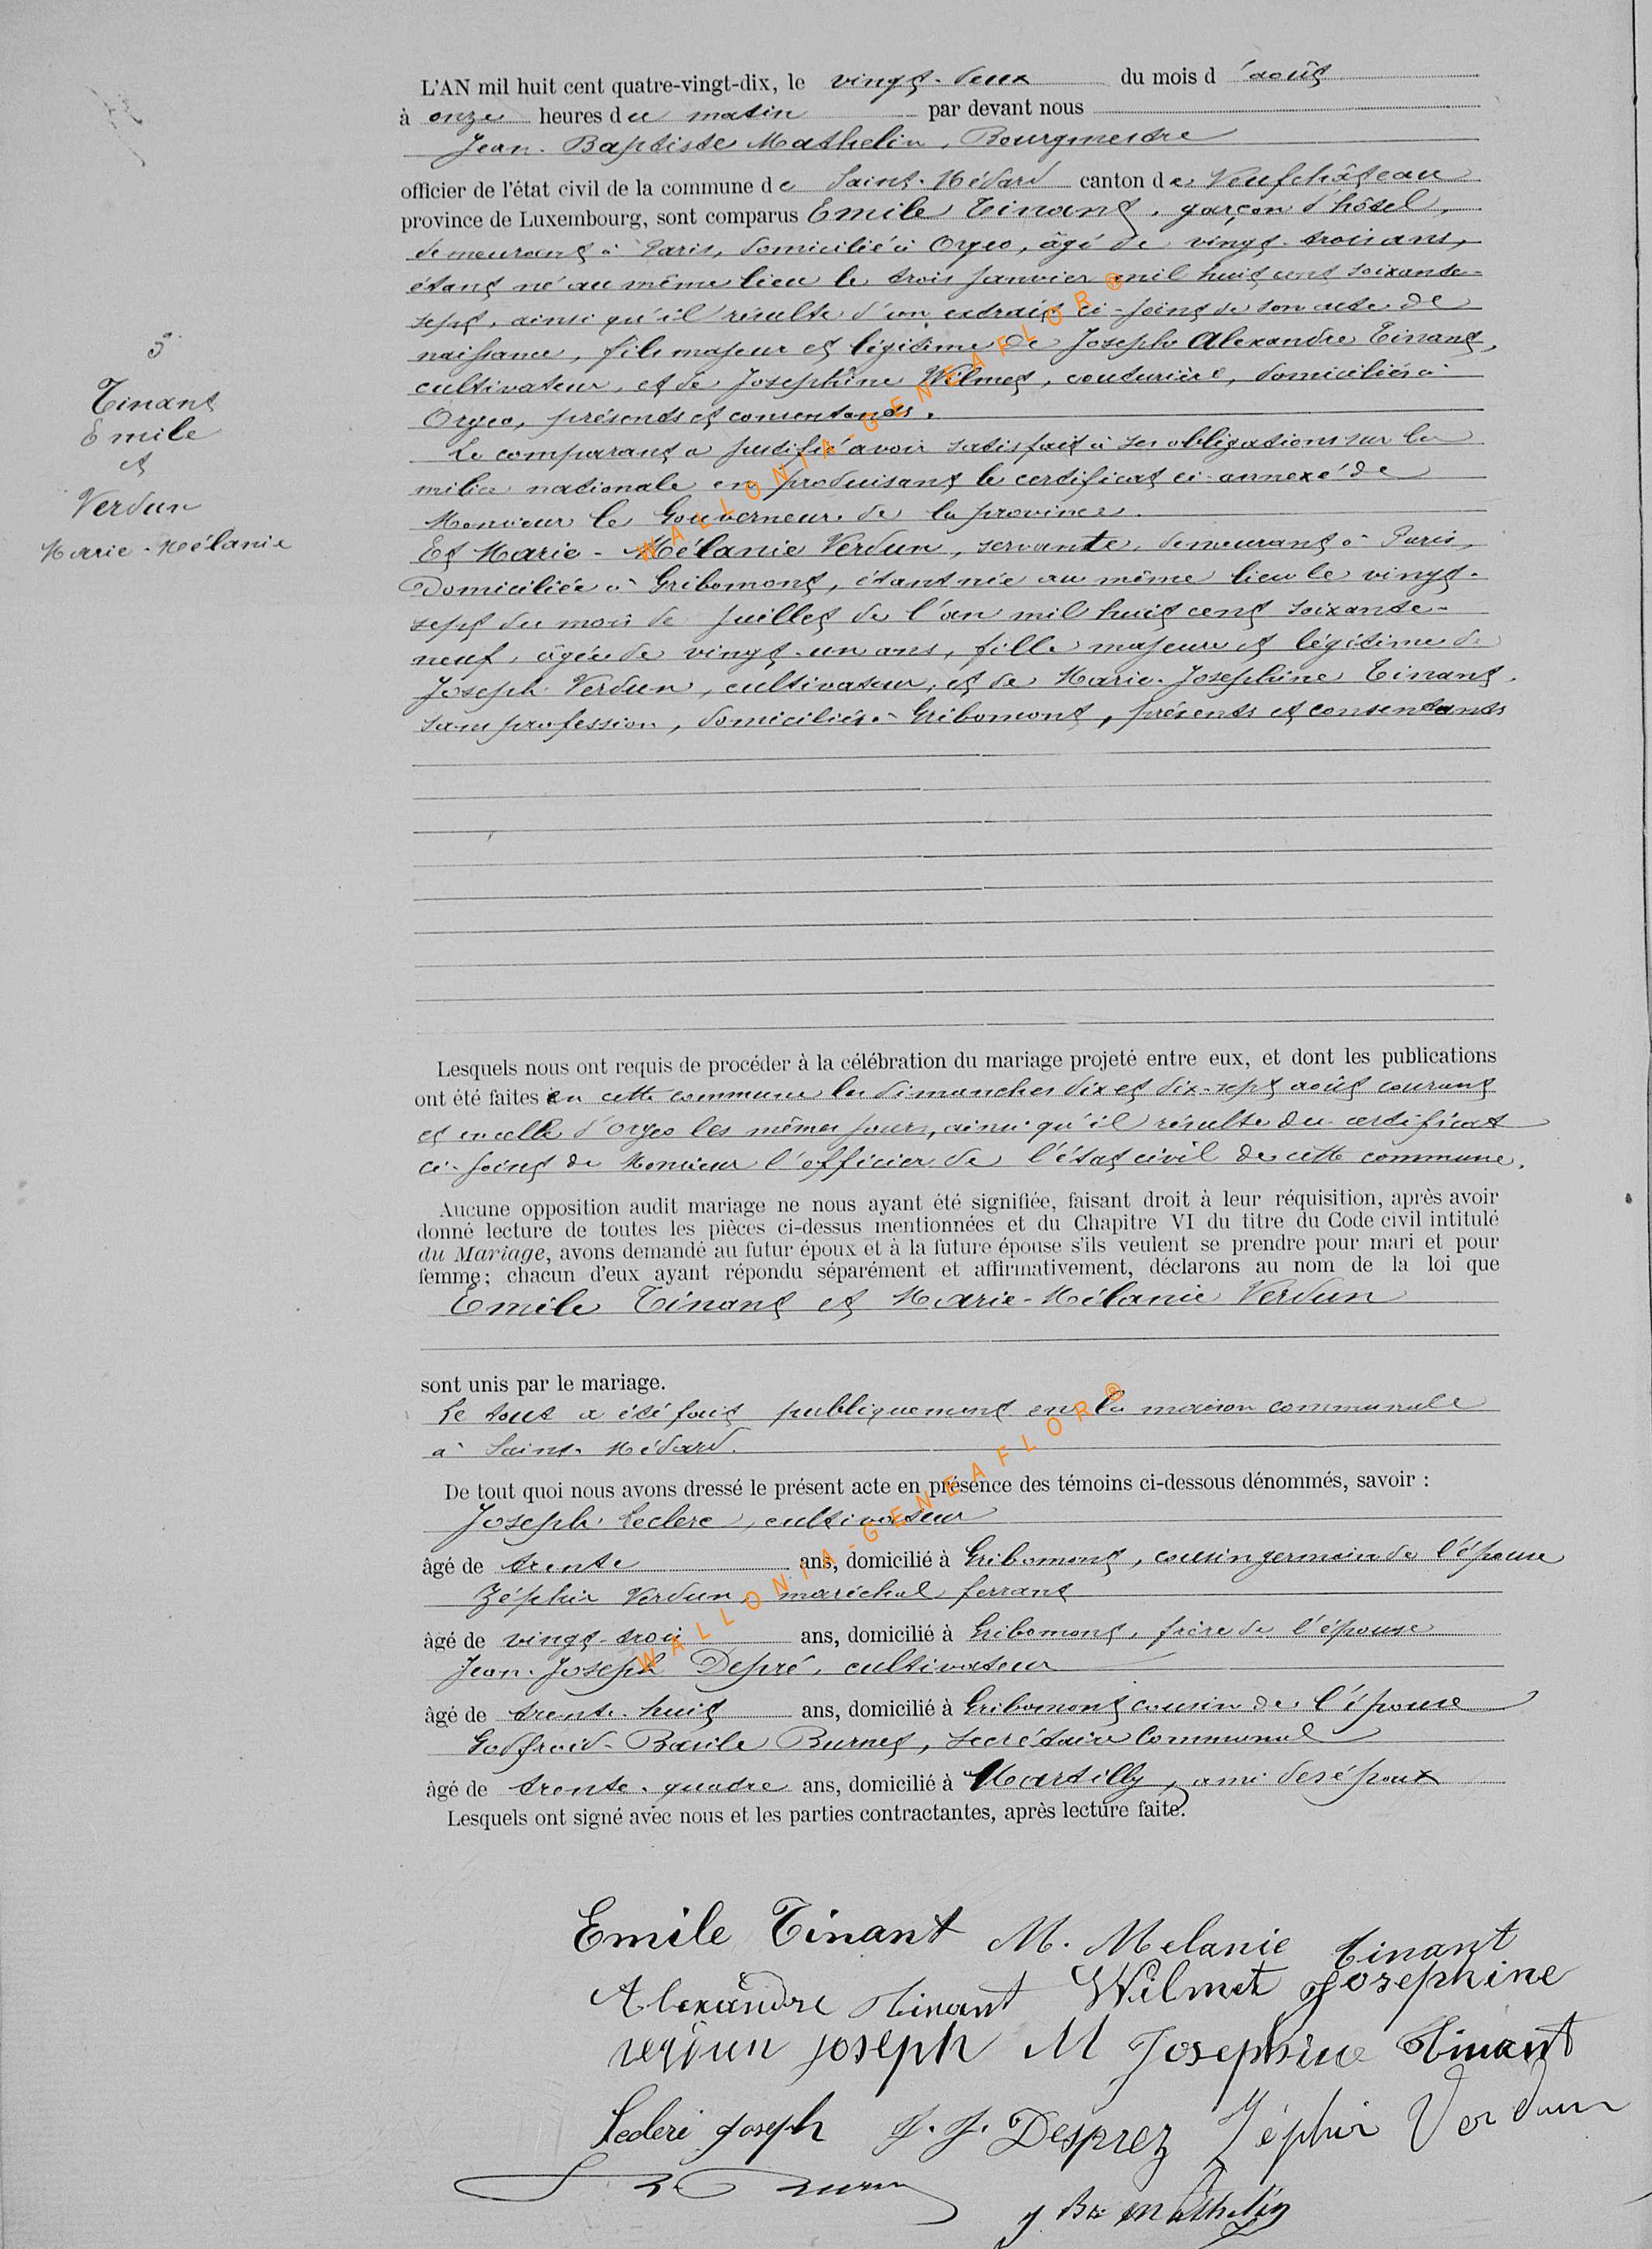 L'AN mil huit cent quatre-vingt-dix, le vingt-deux du mois d'août
à onze heures du matin par devant nous
Jean-Baptiste Mathelin, Bourgmestre
officier de l'état civil de la commune de Saint-Médard canton de Neufchâteau
province de Luxembourg, sont comparus Emile Tinant, garçon d'hôtel,
demeurant à Paris, domicilié à Orgeo, âgé de vingt-trois ans,
étant né au même lieu le trois janvier mil huit cent soixante-
sept, ainsi qu'il résulte d'un extrait ci-joint de son acte de
naissance, fils majeur et légitime de Joseph Alexandre Tinant,
cultivateur, et de Josephine Wilmet, couturière, domiciliés à
Orgeo, présents et consentants.
Le comparant a justifié avoir satisfait à ses obligations sur la
milice nationale en produisant le certificat ci-annexé de
Monsieur le Gouverneur de la province.
Et Marie-Mélanie Verdun, servante, demeurant à Paris,
domiciliée à Gribomont, étant née au même lieu le vingt-
sept du mois de juillet de l'an mil huit cent soixante-
neuf, âgée de vingt-un ans, fille majeure et légitime de
Joseph Verdun, cultivateur, et de Marie-Josephine Tinant,
sans profession, domiciliés à Gribomont, présents et consentants
3
Tinant
Emile
et
Verdun
Marie-Mélanie
Lesquels nous ont requis de procéder à la célébration du mariage projeté entre eux, et dont les publications
ont été faites en cette commune les dimanches dix et dix-sept août courant
et en celle d'Orgeo les mêmes jours, ainsi qu'il résulte du certificat
ci-joint de Monsieur l'officier de l'état civil de cette commune.
Aucune opposition audit mariage ne nous ayant été signifiée, faisant droit à leur réquisition, après avoir
donné lecture de toutes les pièces ci-dessus mentionnées et du Chapitre VI du titre du Code civil intitulé
du Mariage, avons demandé au futur époux et à la future épouse s'ils veulent se prendre pour mari et pour
femme; chacun d'eux ayant répondu séparément et affirmativement, déclarons au nom de la loi que
Emile Tinant et Marie-Mélanie Verdun
sont unis par le mariage.
Le tout a été fait publiquement en la maison communale
à Saint-Médard.
De tout quoi nous avons dressé le présent acte en présence des témoins ci-dessous dénommés, savoir :
Joseph Leclerc, cultivateur
âgé de trente ans, domicilié à Gribomont, cousin germain de l'épouse
Zéphir Verdun, maréchal ferrant
âgé de vingt-trois ans, domicilié à Gribomont, frère de l'épouse
Jean-Joseph Depré, cultivateur
âgé de trente-huit ans, domicilié à Gribomont cousin de l'épouse
Godfroid-Basile Burnet, secrétaire communal
âgé de trente-quatre ans, domicilié à Martilly, ami des époux
Lesquels ont signé avec nous et les parties contractantes, après lecture faite.
Emile Tinant M. Melanie Tinant
Alexandre Tinant Wilmet Josephine
verdun joseph M Josephine Tinant
Joseph J. J. Desprez Zéphir Verdun
J Bte Mathelin
WALLONIA-GENEAFLOR®
WALLONIA-GENEAFLOR®